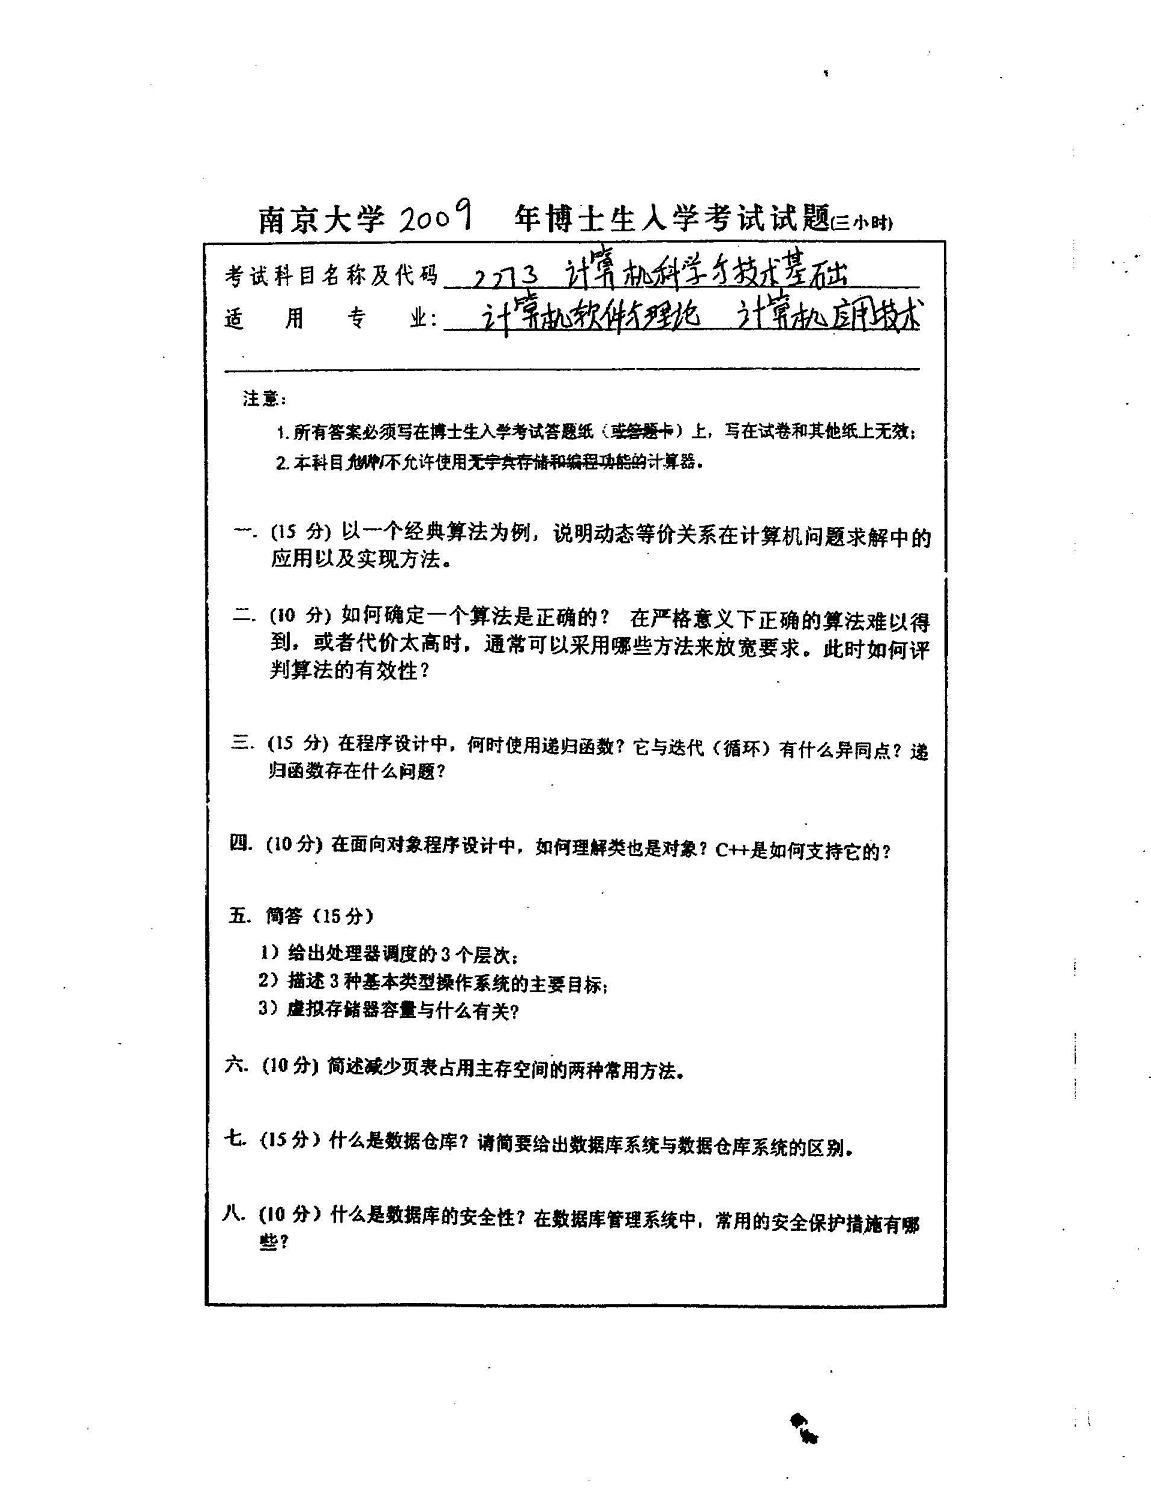 南京大学 2009 年博士生入学考试试题(三小时)
考试科目名称及代码 2273 计算机科学与技术基础
适用专业: 计算机软件与理论 计算机应用技术
注意:
1. 所有答案必须写在博士生入学考试答题纸（或答题卡）上，写在试卷和其他纸上无效；
2. 本科目不允许使用无字典存储和编程功能的计算器。
一. (15 分) 以一个经典算法为例，说明动态等价关系在计算机问题求解中的
应用以及实现方法。
二. (10 分) 如何确定一个算法是正确的? 在严格意义下正确的算法难以得
到，或者代价太高时，通常可以采用哪些方法来放宽要求。此时如何评
判算法的有效性?
三. (15 分) 在程序设计中，何时使用递归函数? 它与迭代（循环）有什么异同点? 递
归函数存在什么问题?
四. (10 分) 在面向对象程序设计中，如何理解类也是对象? C++是如何支持它的?
五. 简答（15 分）
1）给出处理器调度的 3 个层次;
2）描述 3 种基本类型操作系统的主要目标;
3）虚拟存储器容量与什么有关?
六. (10 分) 简述减少页表占用主存空间的两种常用方法。
七. (15 分）什么是数据仓库? 请简要给出数据库系统与数据仓库系统的区别。
八. (10 分）什么是数据库的安全性? 在数据库管理系统中，常用的安全保护措施有哪
些?